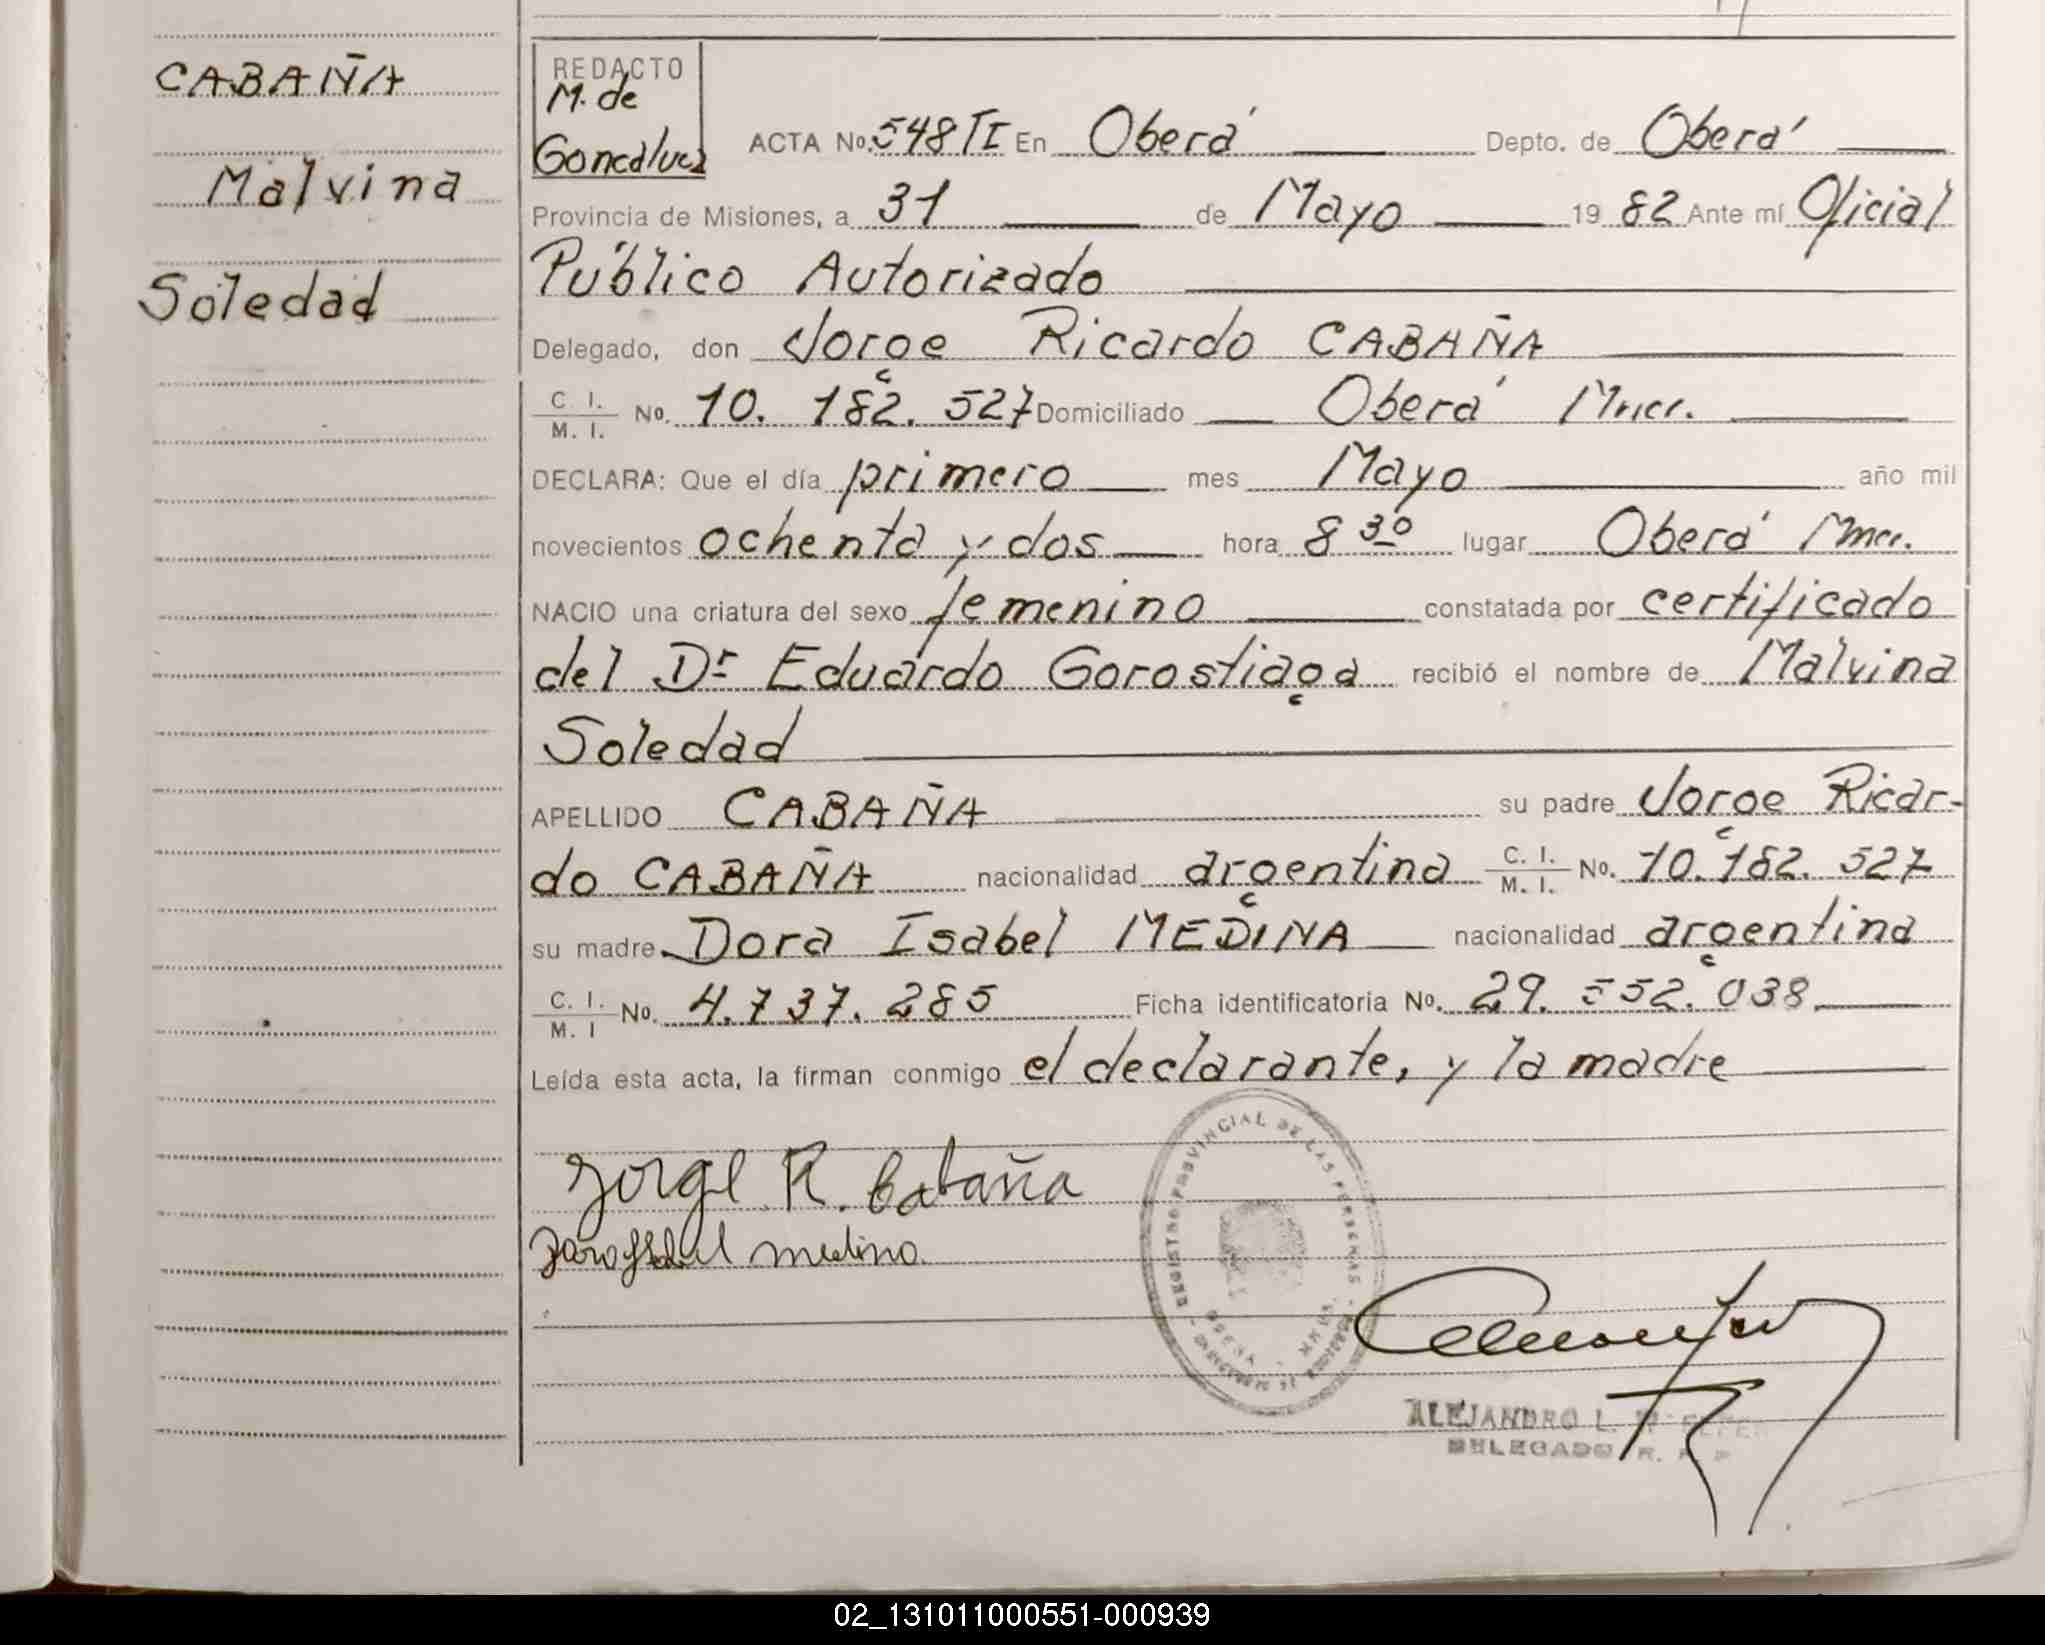 CABAÑA
Malvina
Soledad
REDACTO
M. de
Goncalves
ACTA No. 548 TI En Oberá Depto. de Oberá
Provincia de Misiones, a 31 de Mayo 19 82 Ante mí Oficial
Público Autorizado
Delegado, don Jorge Ricardo CABAÑA
C. I. / M. I. No. 10. 182. 527 Domiciliado Oberá Mnes.
DECLARA: Que el día primero mes Mayo año mil
novecientos ochenta y dos hora 8 30 lugar Oberá Mnes.
NACIO una criatura del sexo femenino constatada por certificado
del Dr Eduardo Gorostiaga recibió el nombre de Malvina
Soledad
APELLIDO CABAÑA su padre Jorge Ricar-
do CABAÑA nacionalidad argentina C. I. / M. I. No. 10. 182. 527
su madre Dora Isabel MEDINA nacionalidad argentina
C. I. / M. I No. 4. 737. 285 Ficha identificatoria No. 29. 552. 038
Leída esta acta, la firman conmigo el declarante, y la madre
Jorge R. Cabaña
Dora Isabel medina
REGISTRO PROVINCIAL DE LAS PERSONAS
ALEJANDRO L.
DELEGADO R. P. P
02_131011000551-000939